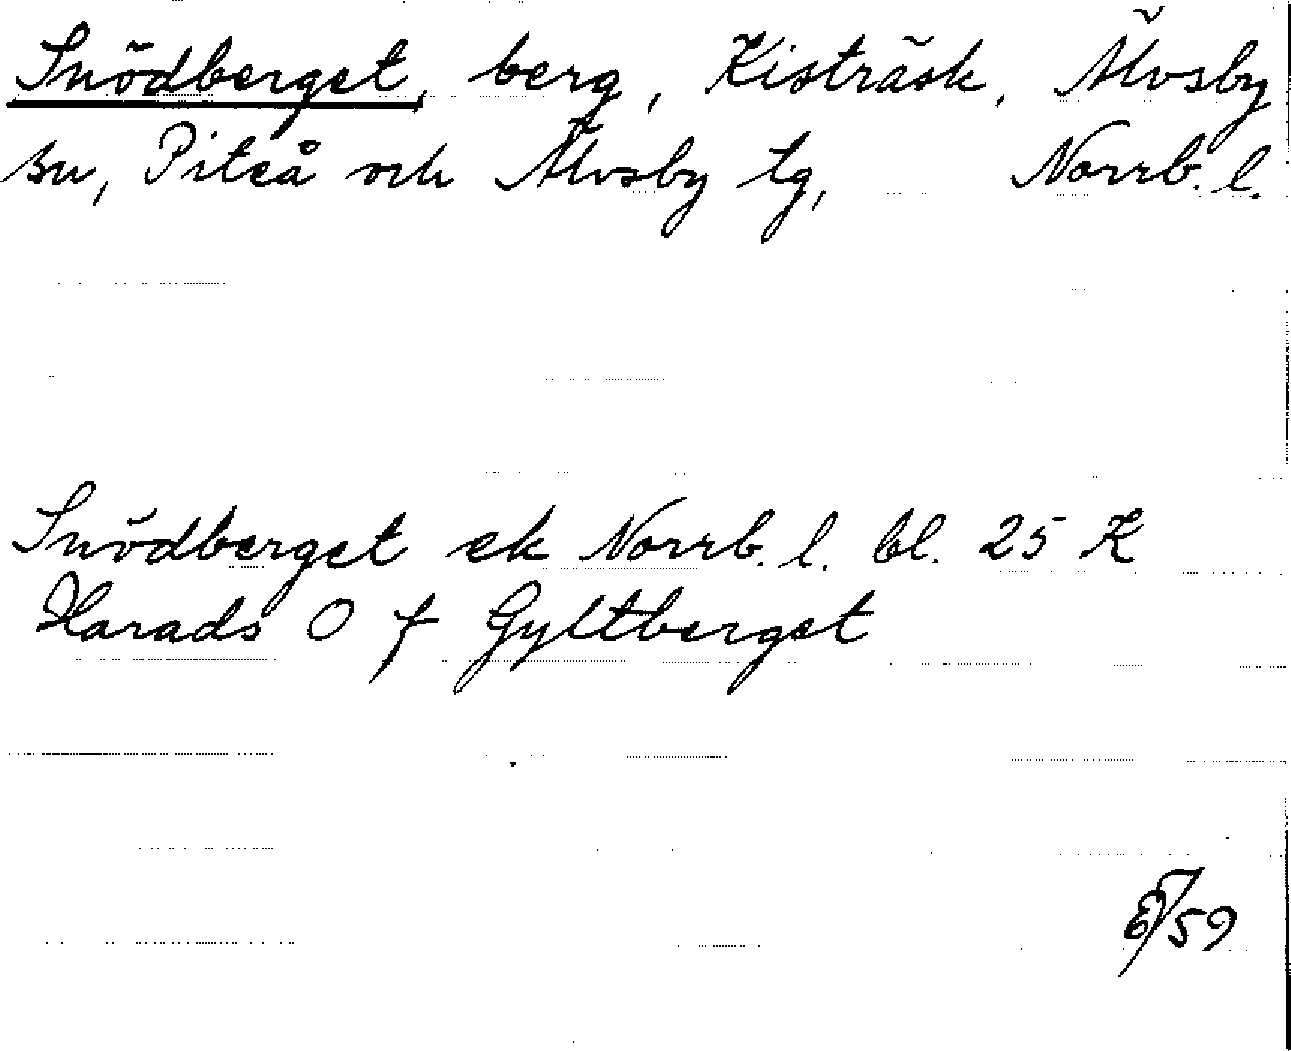 Snödberget, berg, Kisträsk, Älvsby
sn, Piteå och Älvsby tg, Norrb. l.
Snödberget ek Norrb. l. bl. 25 K
Harads O f Gyltberget
/59